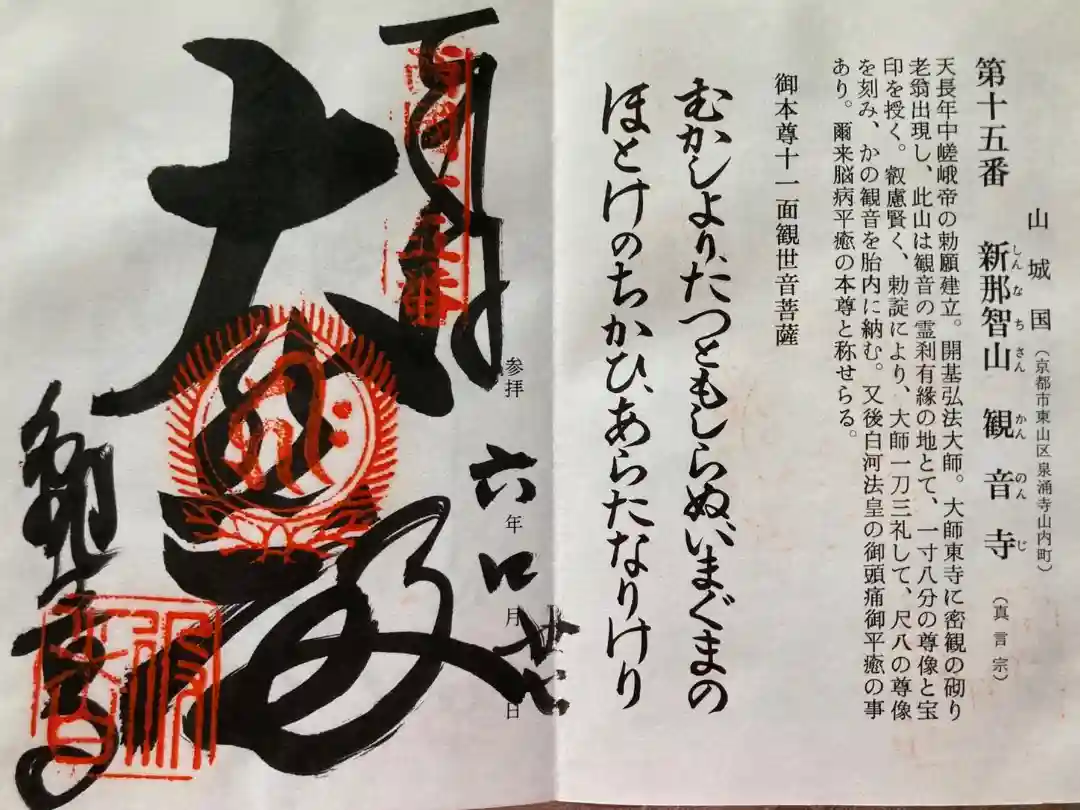 山城国(京都市東山区泉涌寺山内町)
第十五番 新那智山 観音寺(真言宗)
しんなちさん かんのんじ
天長年中嵯峨帝の勅願建立。開基弘法大師。大師東寺に密観の砌り
老翁出現し、此山は観音の霊刹有縁の地とて、一寸八分の尊像と宝
印を授く。叡慮賢く、勅諚により、大師一刀三礼して、尺八の尊像
を刻み、かの観音を胎内に納む。又後白河法皇の御頭痛御平癒の事
あり。爾来脳病平癒の本尊と称せらる。
御本尊十一面観世音菩薩
むかしより、たつともしらぬ、いまぐまの
ほとけのちかひ、あらたなりけり
参拝 六年 月 日
奉拝
五番
大